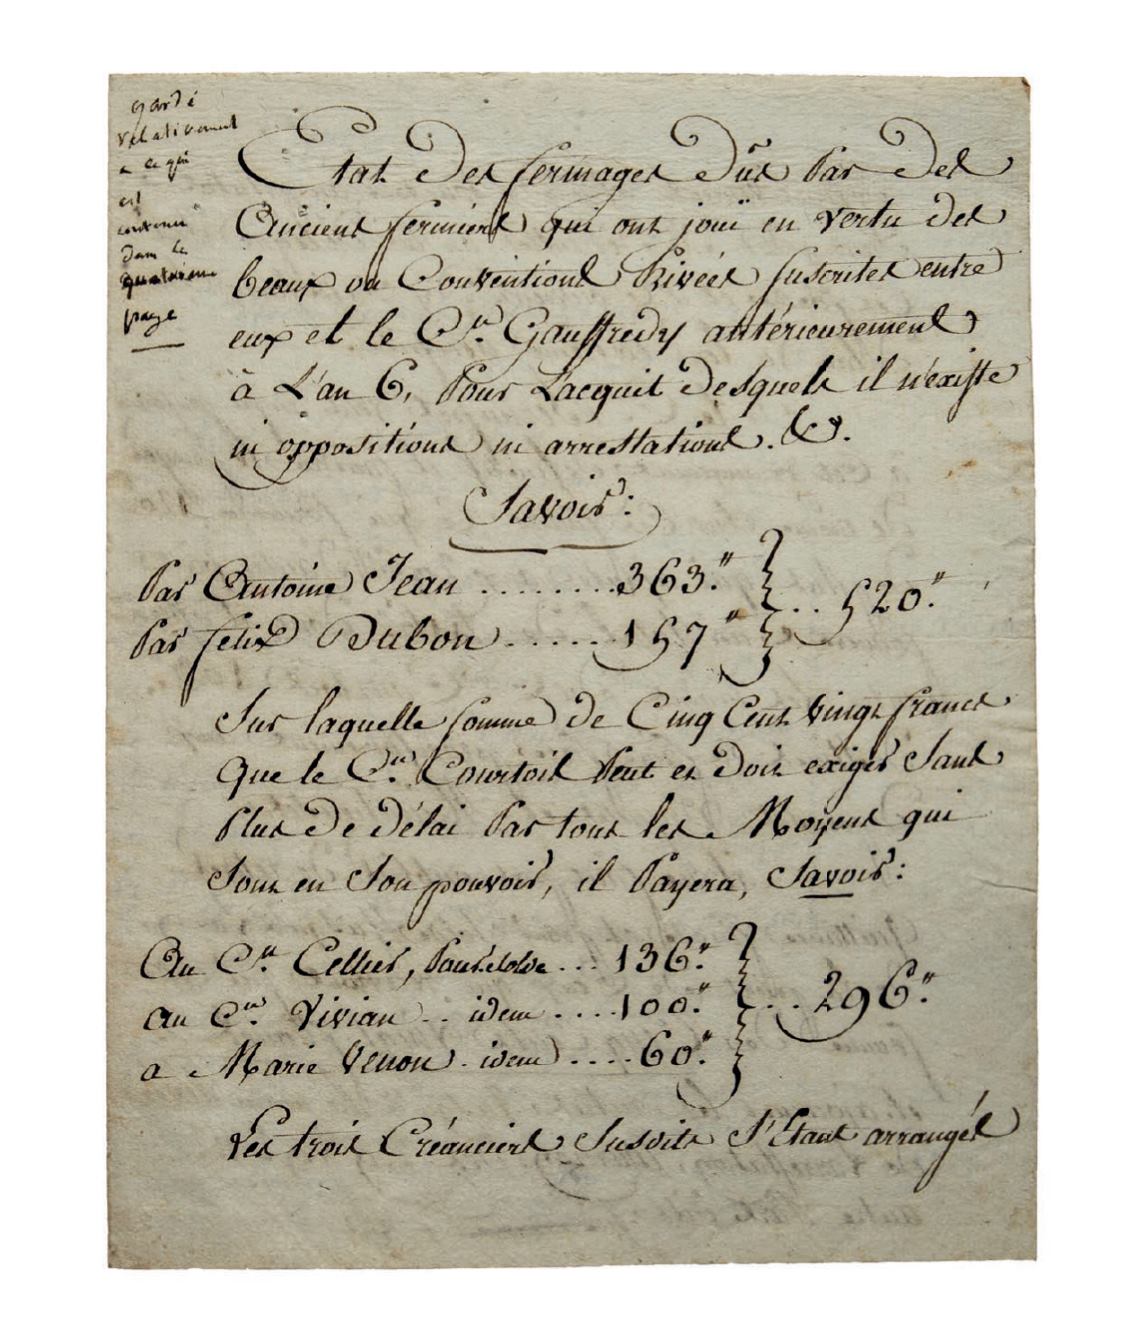 gardé
relativement
a ce qui
est
contenu
dans la
quatrieme
page
Etat Des fermages Dûs Par Des
Anciens fermiers qui ont jouï en vertu des
beaux ou Conventions Privées suscrites entre
eux et le C.en Gauffredy antérieurement
à L'an 6, Pour Lacquit Desquels il n'existe
ni oppositions ni arrestations. &a.
Savoir:
Par Antoine Jean ........ 363."
Par felix Dubon ...... 157."
} ... 520."
Sur laquelle somme de Cinq Cent vingt francs
Que le C.en Courtois Peut et Doit exiger Sans
Plus De délai Par tous les Moyens qui
Sont en Son pouvoir, il Payera, Savoir:
Au C.en Cellier, Pour ... 136."
au C.en Vivian .. idem .... 100."
a Marie Venon . idem .... 60."
} ... 296."
Les trois Créanciers Susdits S'Etant arrangés